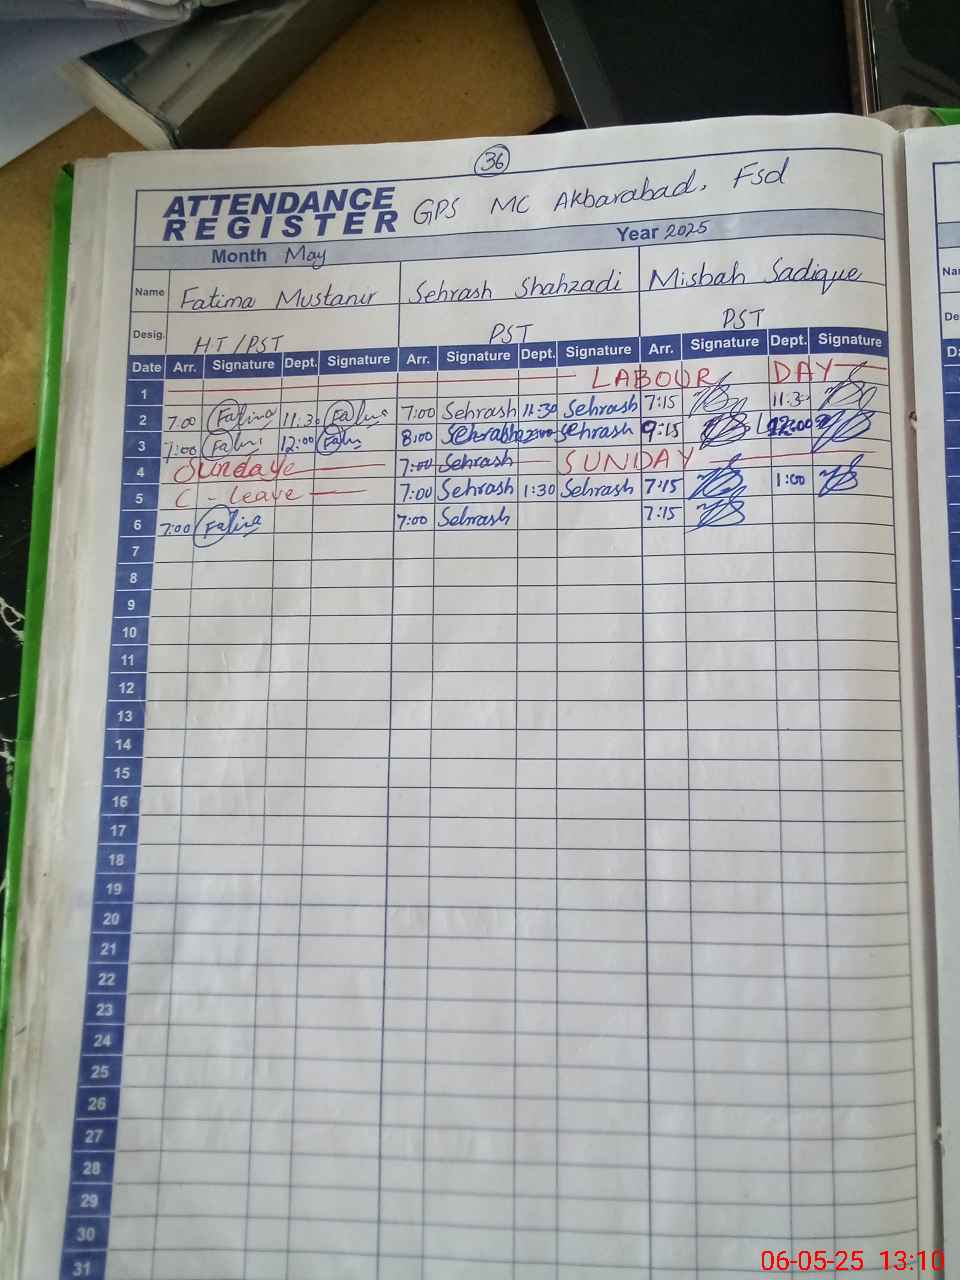 36
ATTENDANCE REGISTER GPS MC Akbarabad, Fsd
Month May Year 2025
Name Fatima Mustanir Sehrash Shahzadi Misbah Sadique
Desig. HT/PST PST PST
Date Arr. Signature Dept. Signature Arr. Signature Dept. Signature Arr. Signature Dept. Signature
1 LABOUR DAY
2 7:00 Fatima 11:30 7:00 Sehrash 11:30 Sehrash 7:15 11:30
3 7:00 12:00 8:00 Sehrash Sehrash 9:15 12:00
4 Sundaye 7:00 Sehrash SUNDAY
5 C - leave 7:00 Sehrash 1:30 Sehrash 7:15 1:00
6 7:00 Fatima 7:00 Sehrash 7:15
7
8
9
10
11
12
13
14
15
16
17
18
19
20
21
22
23
24
25
26
27
28
29
30
31
06-05-25 13:10